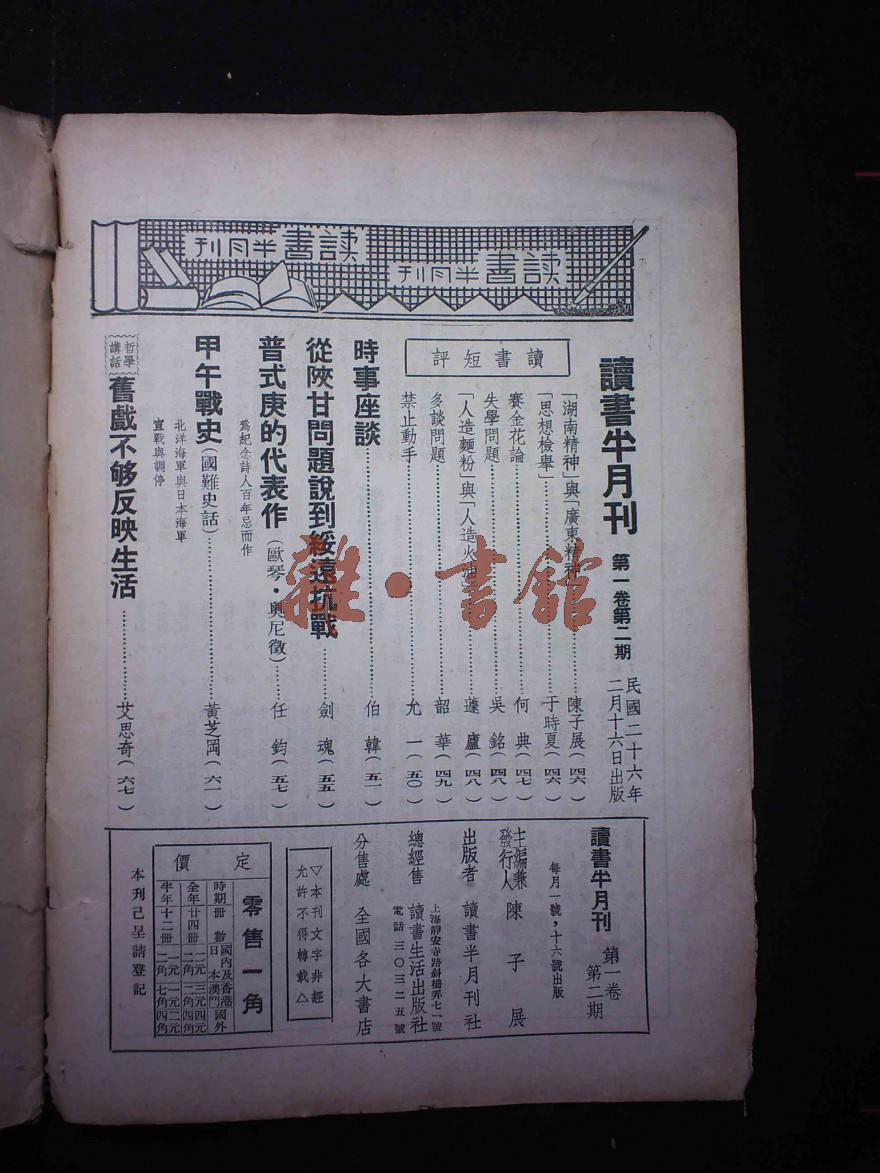 讀書半月刊
讀書半月刊
讀書半月刊 第一卷第二期 民國二十六年
二月十六日出版
讀書短評
「湖南精神」與「廣東精神」 陳子展(四六)
「思想檢舉」 于時夏(四六)
賽金花論 何典(四七)
失學問題 吳銘(四八)
「人造麵粉」與「人造火油」 蘧廬(四八)
多談問題 韶華(四九)
禁止動手 允一(五〇)
時事座談 伯韓(五一)
從陝甘問題說到綏遠抗戰 劍魂(五五)
普式庚的代表作(歐琴·奧尼徵) 任鈞(五七)
爲紀念詩人百年忌而作
甲午戰史(國難史話) 黃芝岡(六一)
北洋海軍與日本海軍
宣戰與調停
哲學講話 舊戲不够反映生活 艾思奇(六七)
讀書半月刊 第一卷
第二期
每月一號,十六號出版
主編兼
發行人 陳子展
出版者 讀書半月刊社
上海靜安寺路斜橋弄七一號
總經售 讀書生活出版社
電話 三〇三二五號
分售處 全國各大書店
▽本刊文字非經
允許不得轉載△
定價
零售一角
時期 冊數 國內及日本 香港澳門 國外
全年 廿四冊 二元二角 三元二角 四元四角
半年 十二冊 一元二角 一元七角 二元四角
本刊已呈請登記
雜·書館